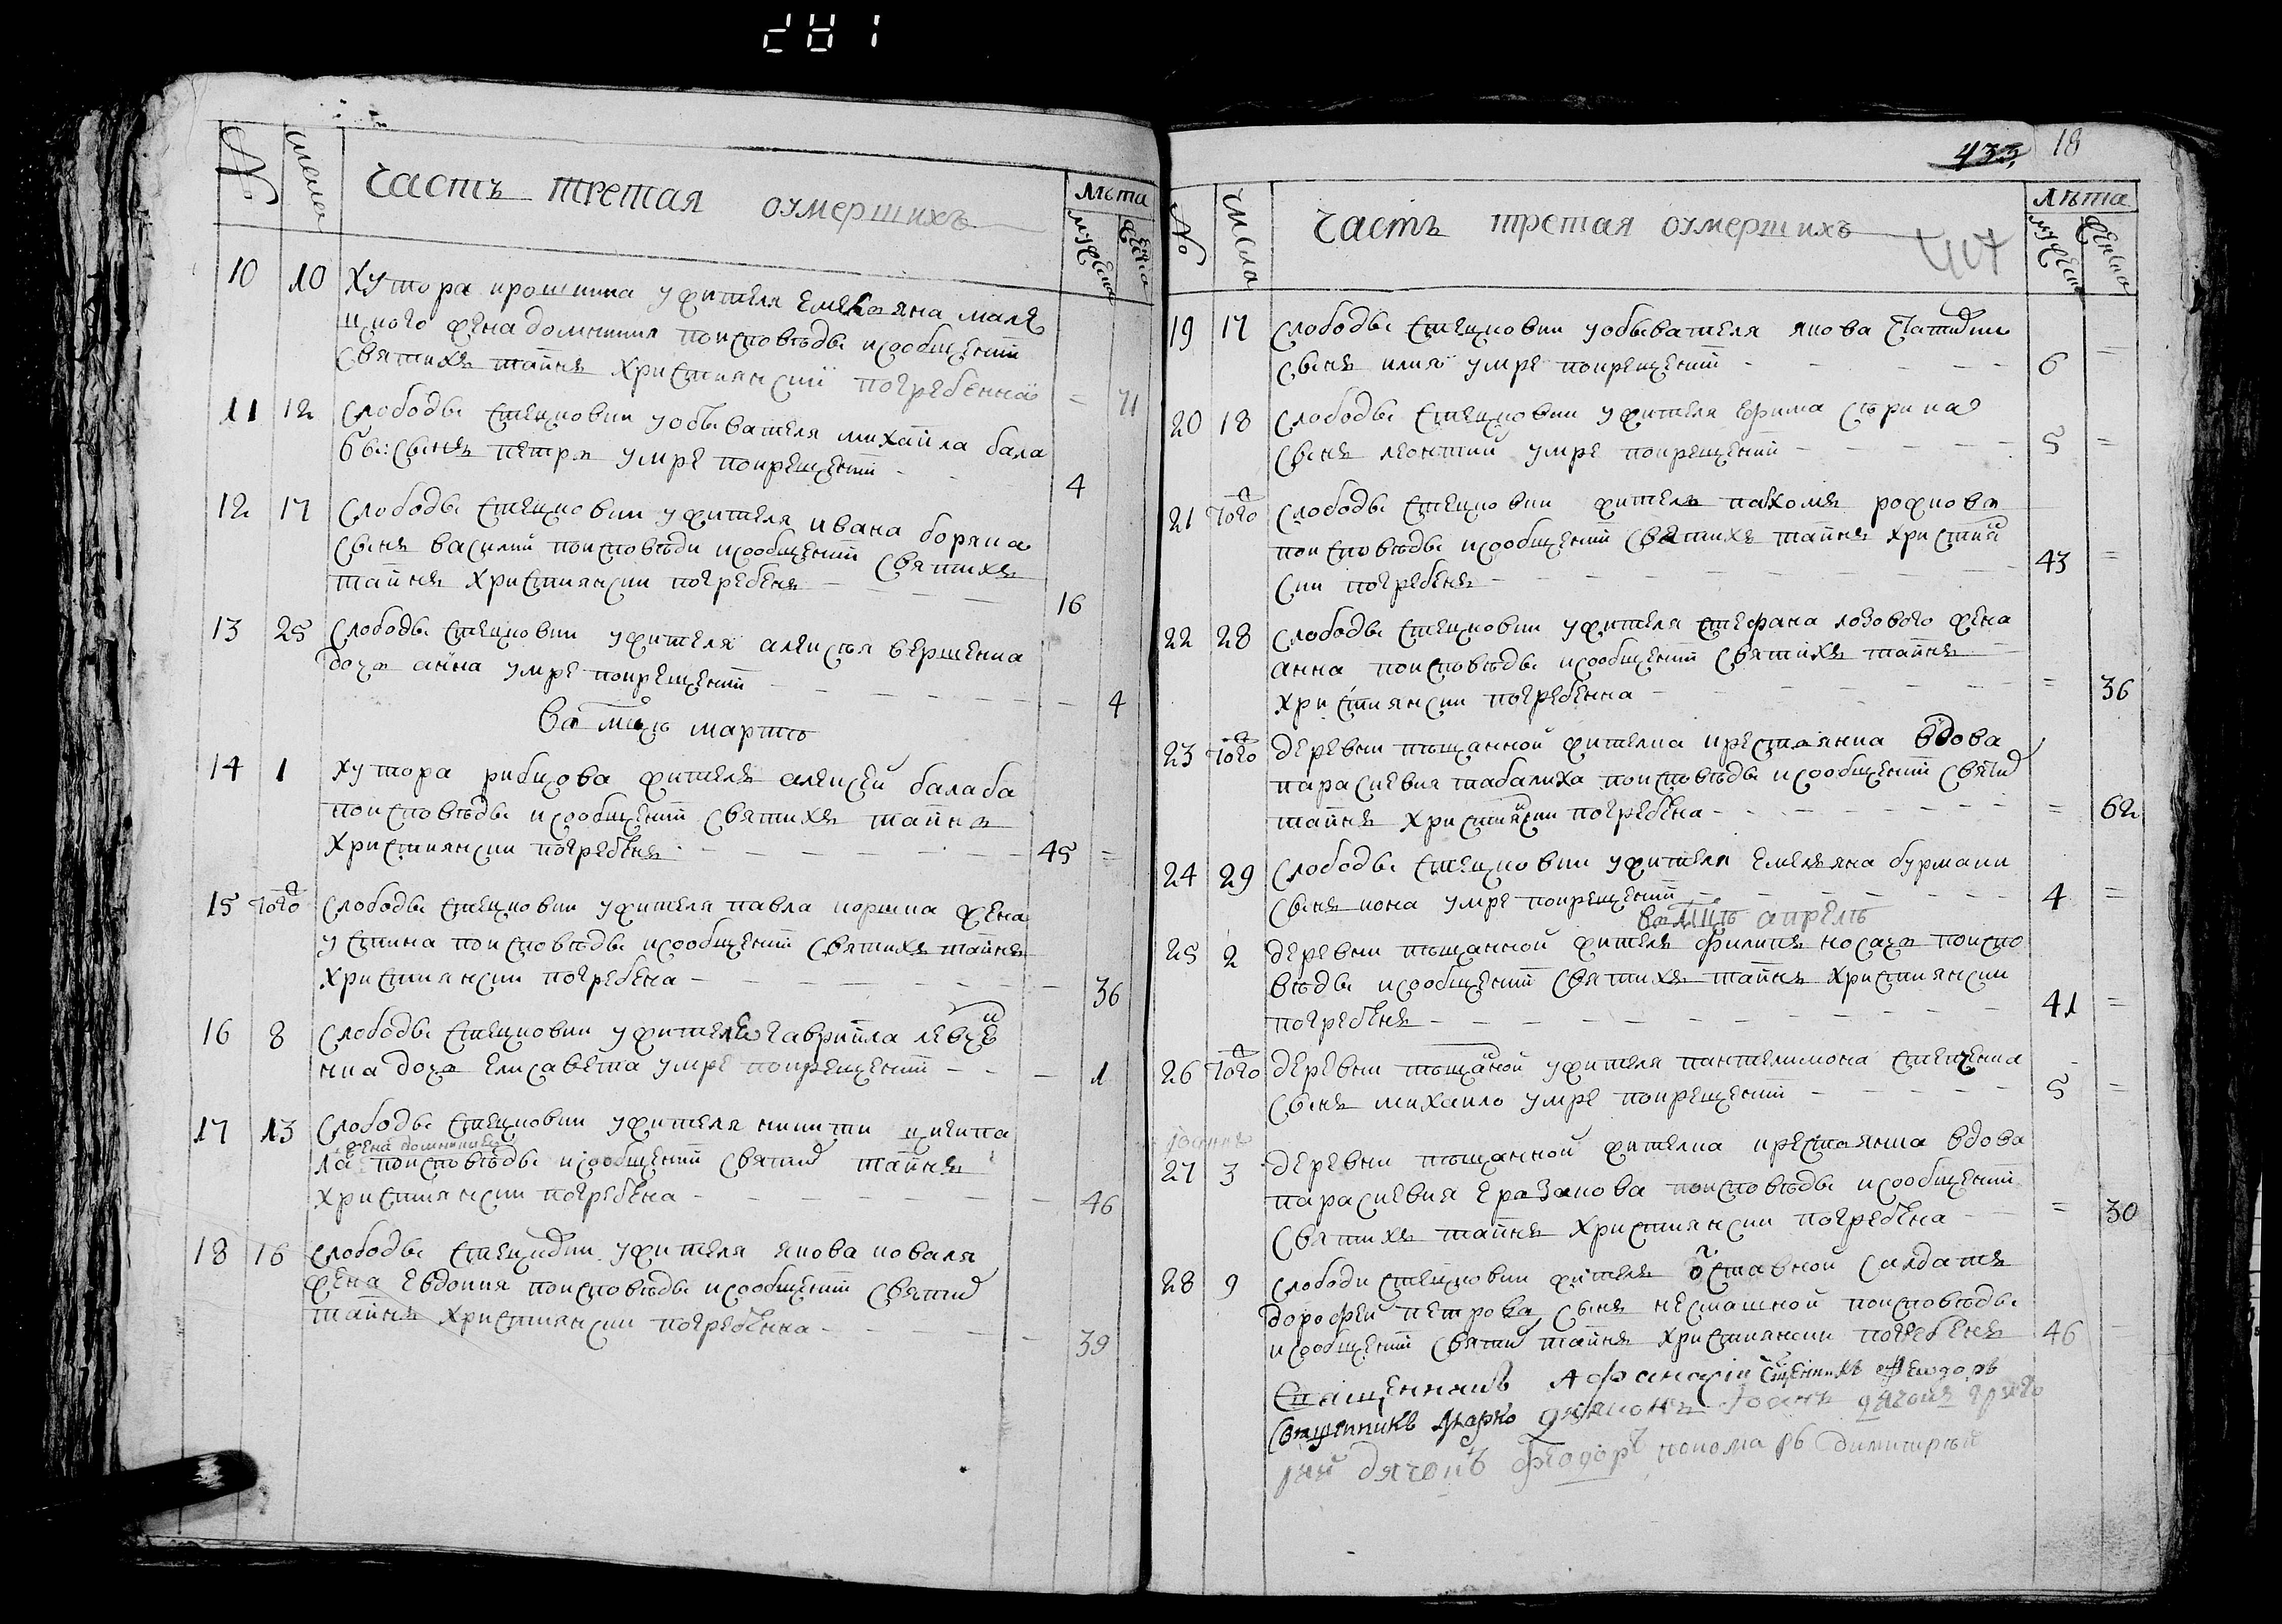 № числа часть третая оумершихъ лѣта
мужеска женска
10 10 Хутора крошина у жителя Емелъяна мале
цкого жена домникия поисповѣдѣ исообщении
святихъ тайнъ християнскии погребенна = 71
11 12 слободы стецковки уобывателя михаила бала
бы: сынъ петръ умре покрещении - 4
12 17 слободы стецковки ужителя ивана
сынъ василий поисповѣди исообщении святихъ
тайнъ християнскии погребенъ 16
13 25 слободы стецковки ужителя алексѣя вершенка
дочъ анна умре покрещении 4
въ мцѣ мартѣ
14 1 хутора рибцова житель алексей балаба
поисповѣдѣ исообщении святихъ тайнъ
християнскии погребенъ 45 =
15 того слободы стецковки ужителя павла коржа жена
устина поисповѣдѣ исообщении святихъ тайнъ
християнскии погребена 36
16 8 слободы стецковки ужителя гавриила
дочъ елисавета умре покрещении 1
17 13 слободы стецковки ужителя никити
жена домникия
ла поисповѣдѣ исообщении святих тайнъ
християнскии погребена 46
18 16 слободы стецковки ужителя якова коваля
жена евдокия поисповѣдѣ исообщении святих
тайнъ християнскии погребенна 39
433 18
№ числа часть третая оумершихъ лѣта
мужеска женска
19 17 слободы стецковки уобывателя якова
сынъ илия умре покрещении 6 =
20 18 слободы стецковки ужителя ефима сѣрика
сынъ леонтий умре покрещении 5 =
21 того слободы стецковки житель пахомъ рожновъ
поисповѣдѣ исообщении святихъ тайнъ християн
скии погребенъ 43 =
22 28 слободы стецковки ужителя стефана лозового жена
анна поисповѣдѣ исообщении святихъ тайнъ
християнскии погребенна = 36
23 того деревни пѣщанной жителка крестъянка вдова
параскевия табалиха поисповѣдѣ исообщении святих
тайнъ християнскии погребена = 62
24 29 слободы стецковки ужителя емелъяна бурмаки
сынъ иона умре покрещении 4 =
въ мцѣ апрелѣ
25 2 деревни пѣщанной житель филипъ носачъ поиспо
вѣдѣ исообщении святихъ тайнъ християнскии
погребенъ 41 =
26 того деревни пѣщаной ужителя пантелимона стеценка
сынъ михаило умре покрещении 5 =
27 3 деревни пѣщанной жителка крестъянка вдова
параскевия поисповѣдѣ исообщении
святихъ тайнъ християнскии погребена = 30
28 9 слободи стецковки житель отставной салдатъ
дорофей петровъ сынъ поисповѣдѣ
исообщении святих тайнъ християнскии погребенъ 46
Священникъ Афанасий Сщенникъ Феодоръ
Священникъ Марко диаконъ Иоанъ дячокъ
дячокъ Феодоръ пономарь димитрий